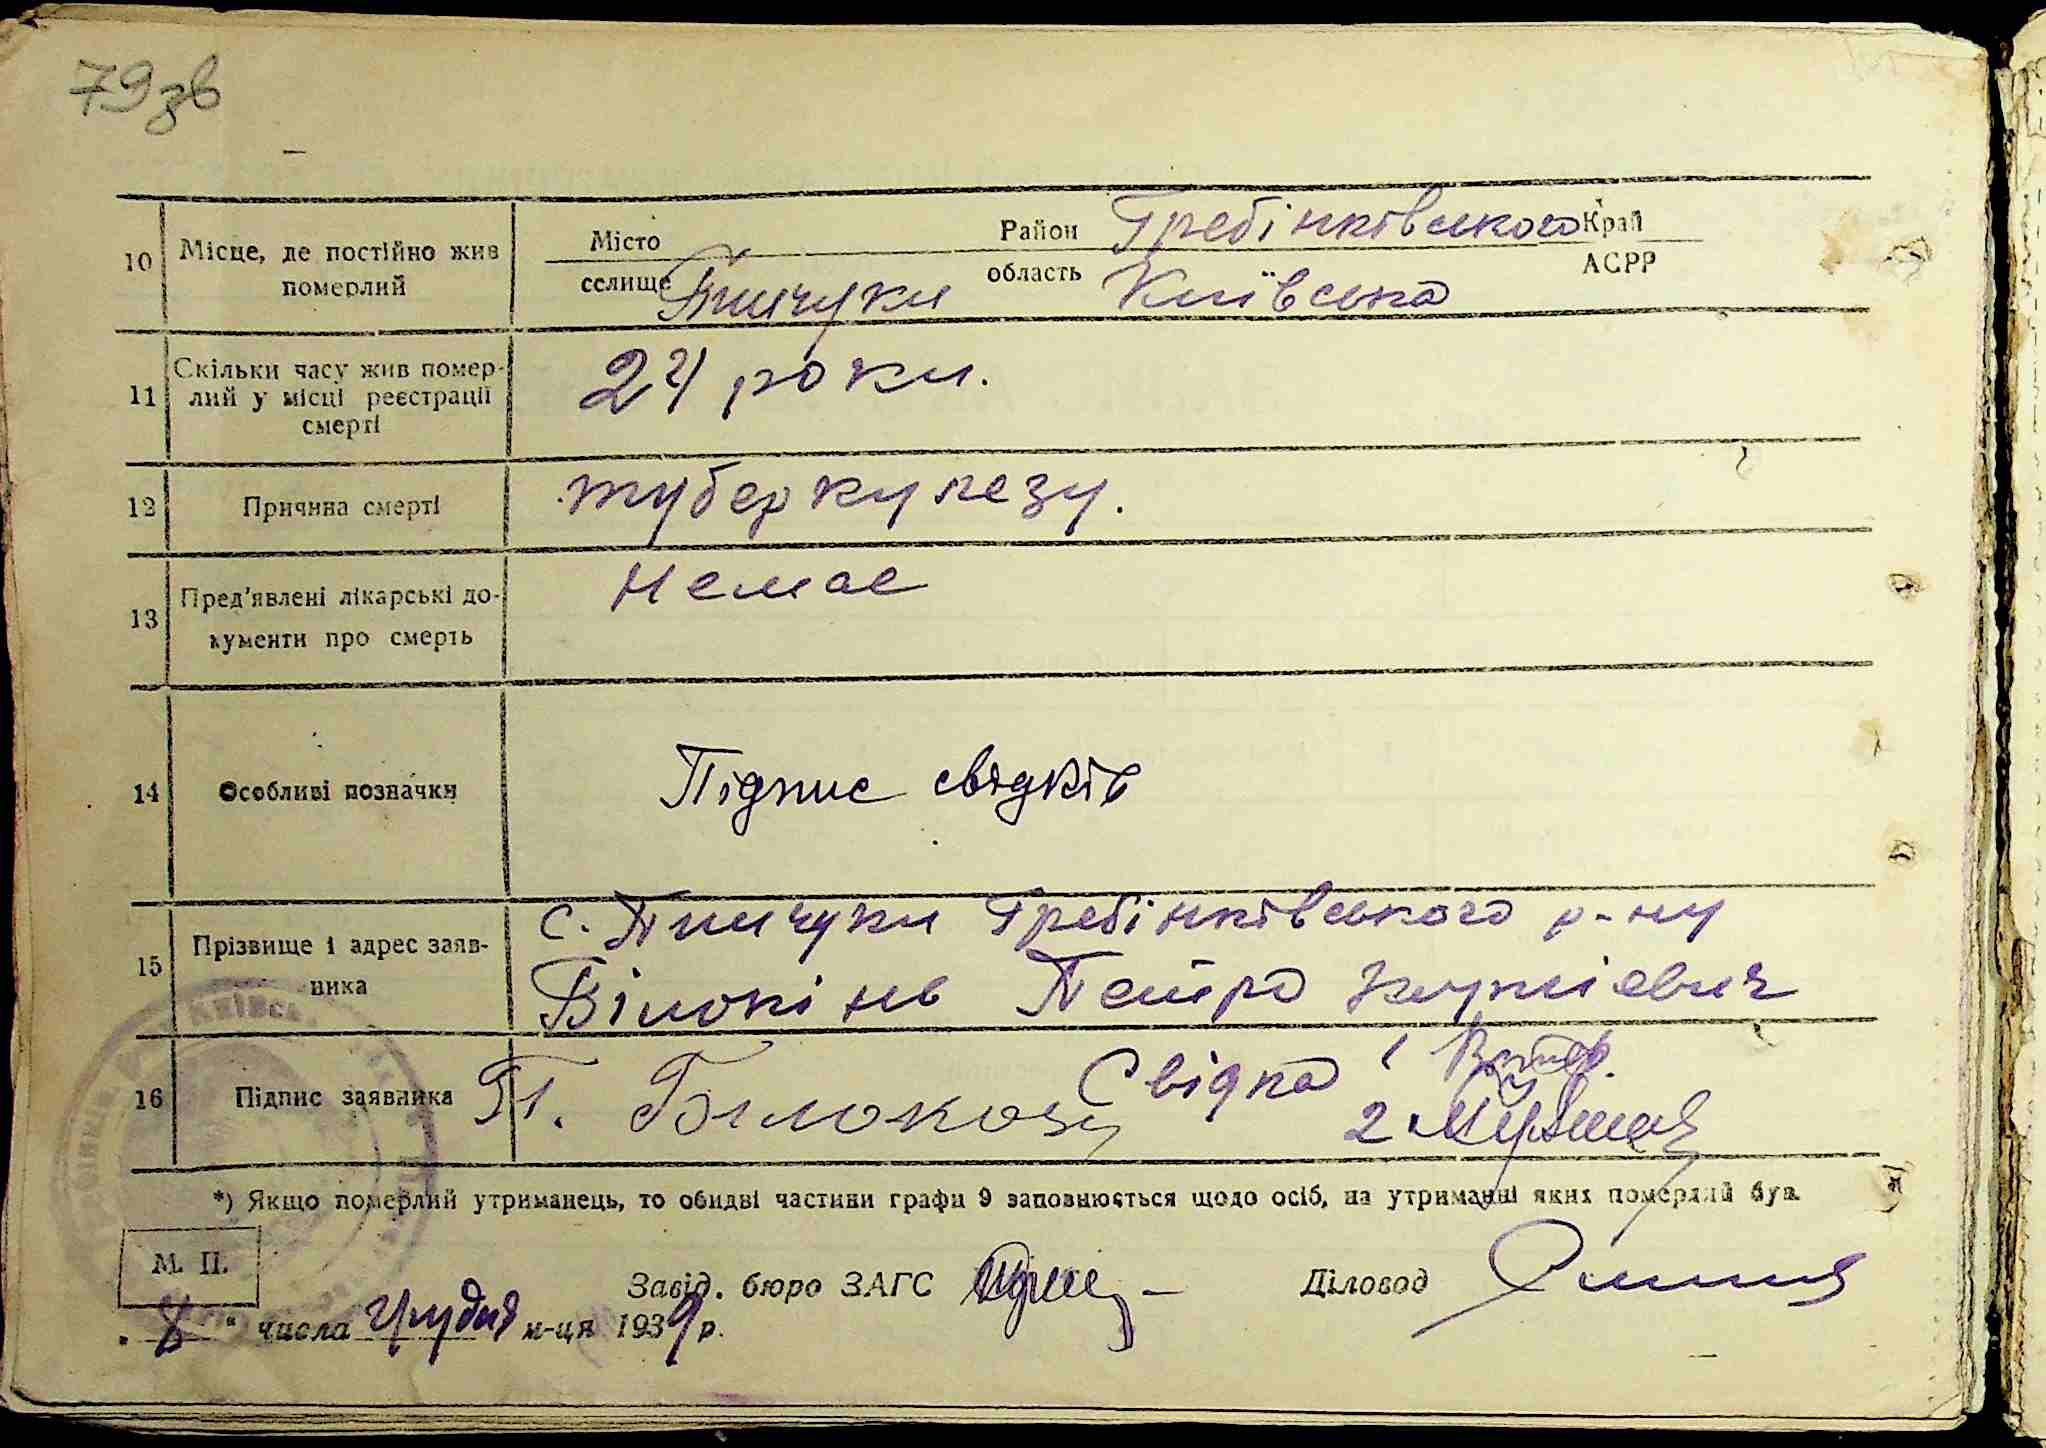 79зв
10 Місце, де постійно жив померлий
Місто
Район Гребінківського Край
селище Пінчуки область Київська АСРР
11 Скільки часу жив помер-
лий у місці реєстрації
смерті
24 роки.
12 Причина смерті туберкулезу.
13 Пред'явлені лікарські до-
кументи про смерть
Немає
14 Особливі позначки Підпис свідків
15 Прізвище і адрес заяв-
ника
с. Пінчуки Гребінківського р-ну
Білокінь Петро
16 Підпис заявника П. Білоконь Свідка 1
2
*) Якщо померлий утриманець, то обидві частини графи 9 заповнюється щодо осіб, на утриманні яких померлий був.
М. П.
Завід. бюро ЗАГС Діловод
" 8 " числа грудня м-ця 1939 р.